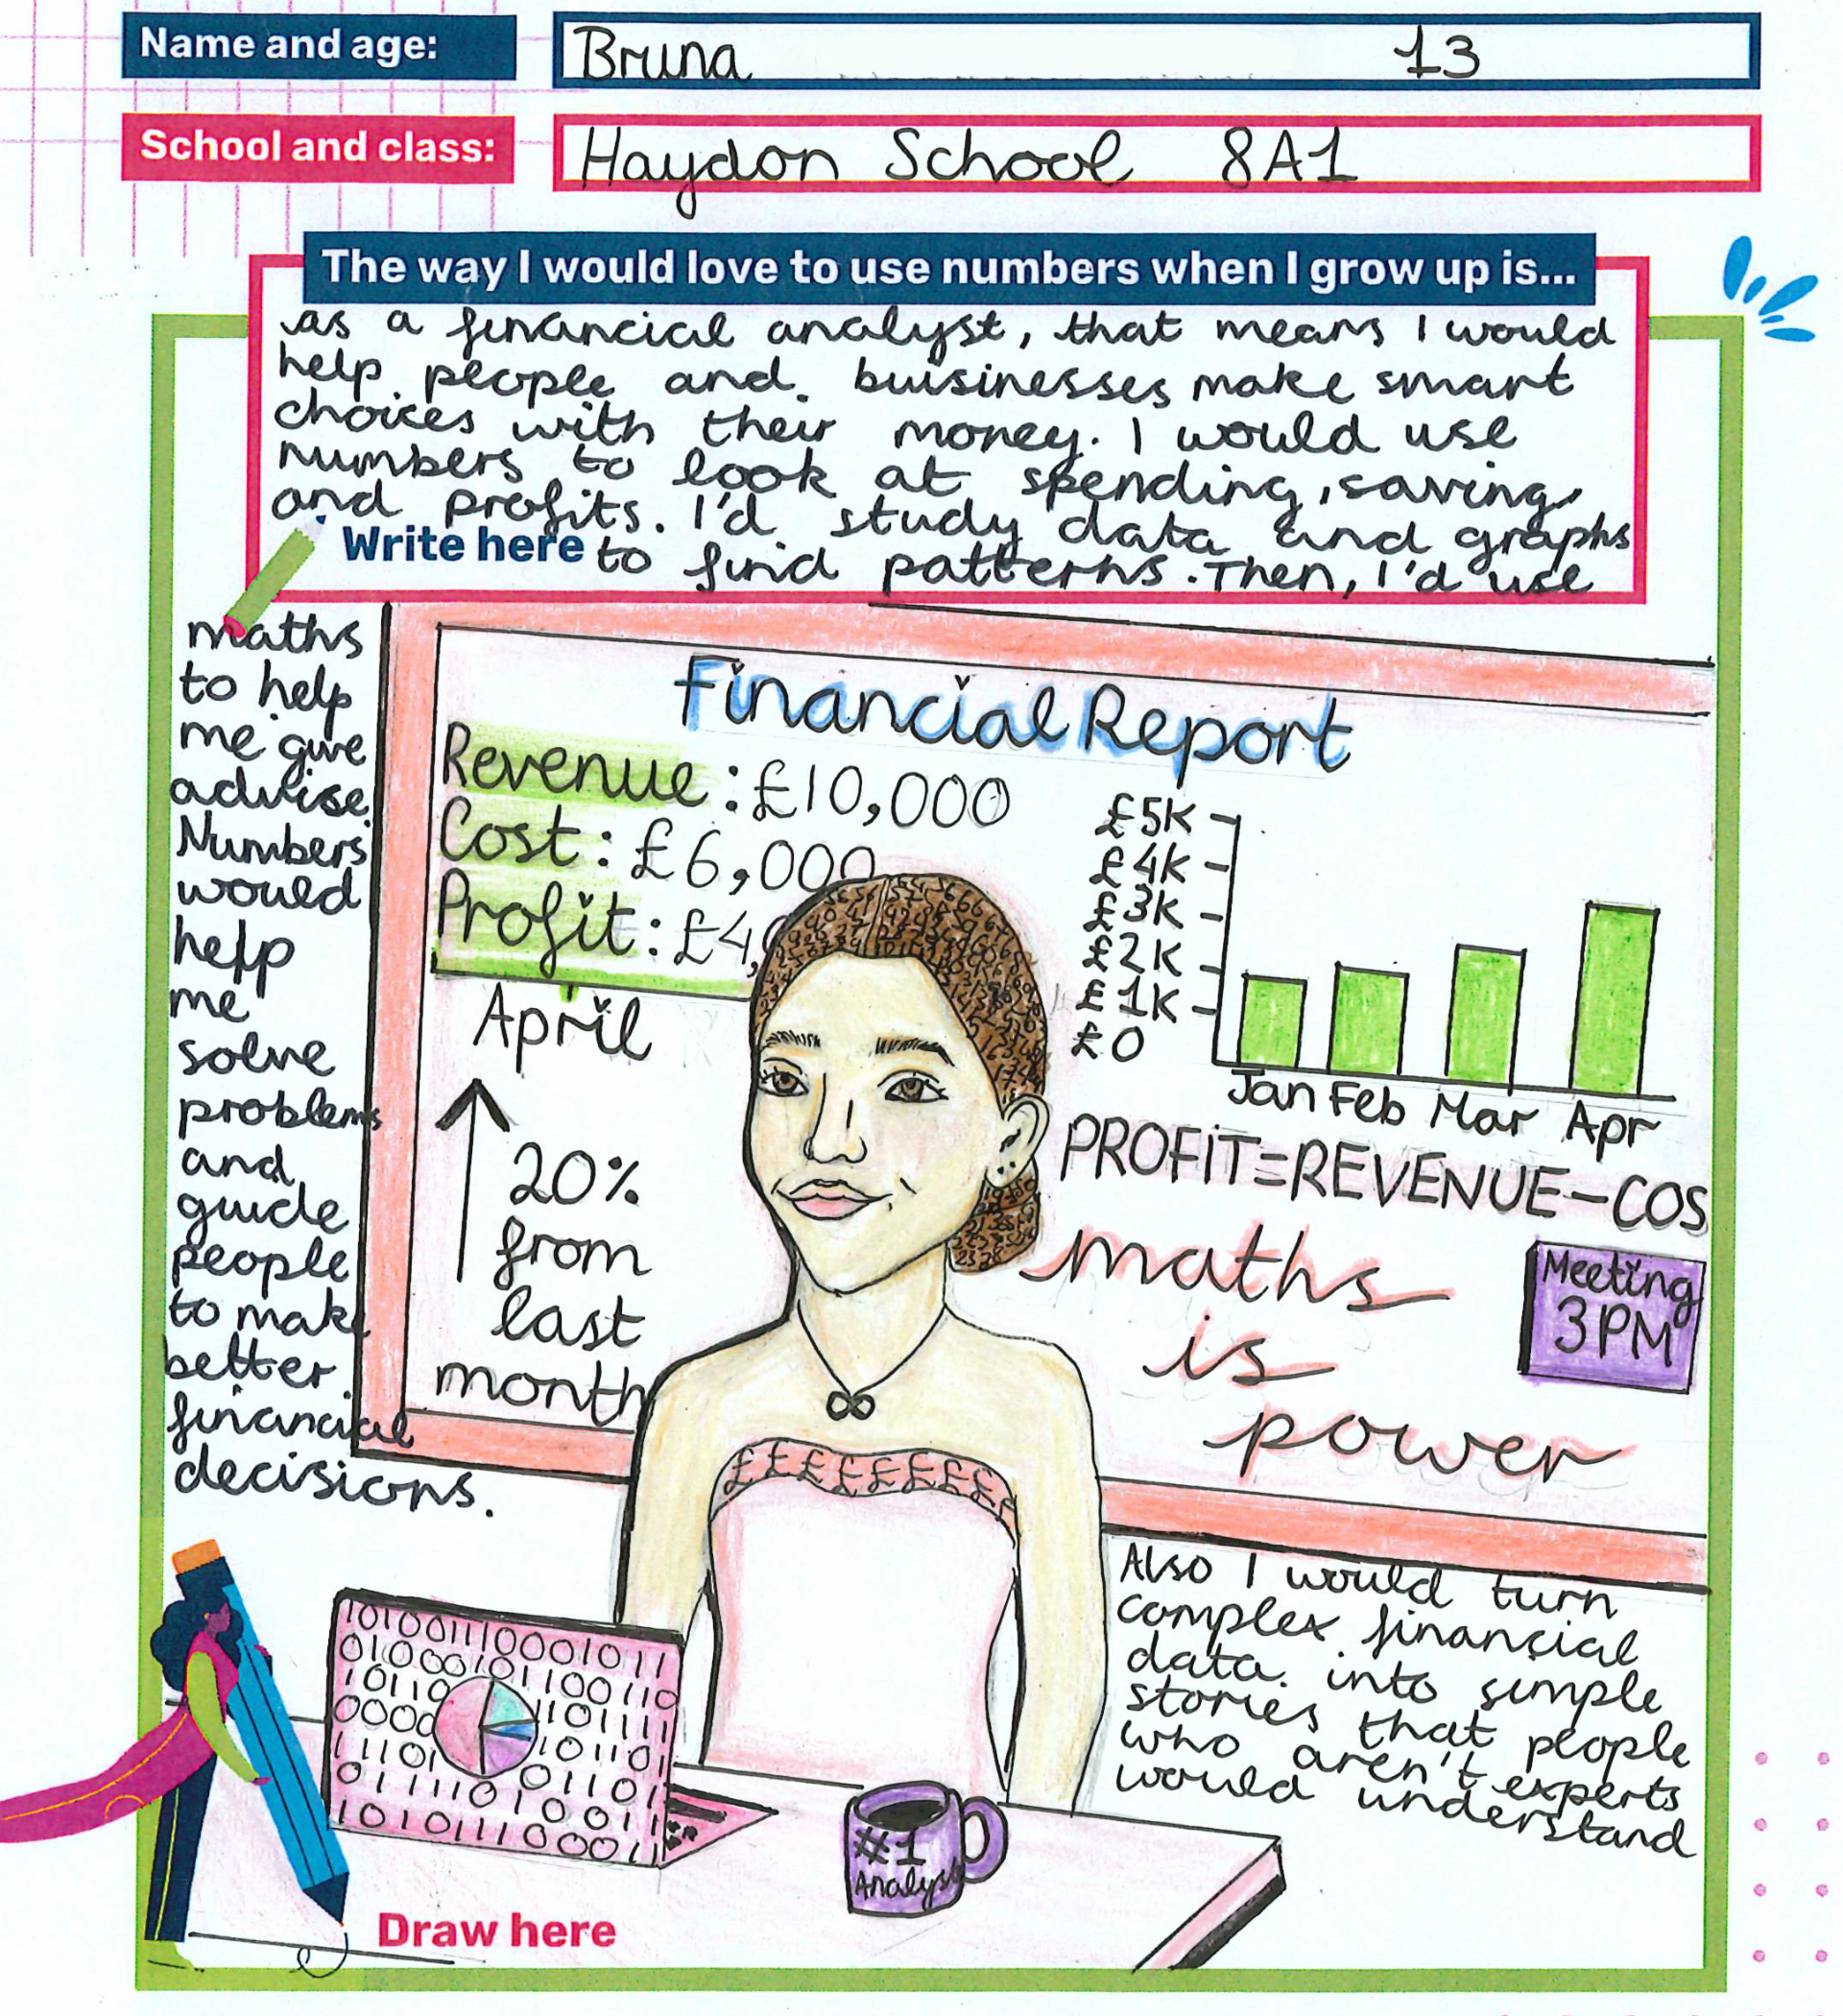 Name and age:
Bruna 13
School and class:
Haydon School 8A1
The way I would love to use numbers when I grow up is...
as a financial analyst, that means I would
help people and buisinesses make smart
choices with their money. I would use
numbers to look at spending, saving
and profits. I'd study data and graphs
Write here
to find patterns. Then, I'd use
maths
to help
me give
advise.
Numbers
would
help
me
solve
problems
and
guide
people
to make
better
financial
decisions.
Financial Report
Revenue: £10,000
Cost: £6,000
Profit: £4,
April
20%
from
last
month
£5K
£4K
£3K
£2K
£1K
£0
Jan Feb Mar Apr
PROFIT=REVENUE-COS
maths
is
power
Meeting
3PM
££££££££
Also I would turn
complex financial
data into simple
stories that people
who aren't experts
would understand
#1
Analyst
Draw here